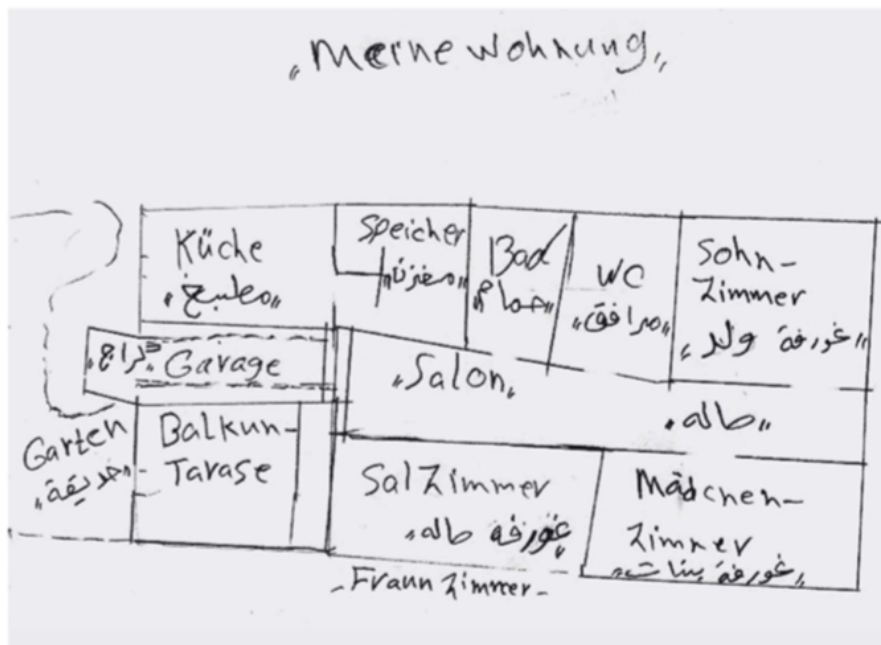 „Meine Wohnung„
Küche
„مطبخ„
Speicher
„مخزن„
Bad
„حمام„
WC
„مرافق„
Sohn-
Zimmer
„غورفة ولد„
„گراج„ Garage
„Salon„
„صاله„
Garten
„حديقة„
Balkun-
Tarase
Sal Zimmer
„غورفه صاله„
Mädchen-
Zimmer
„غورفة بنات„
- Fraun Zimmer -